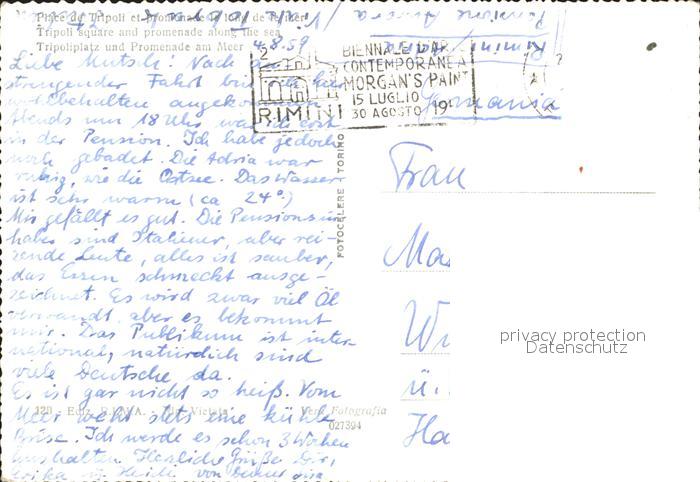 Place de Tripoli et promenade le long de la mer
Tripoli square and promenade along the sea
Tripoliplatz und Promenade am Meer 4.8.59
Liebe Mutsch! Nach
strengender Fahrt bin ich hier
wohlbehalten angekommen
Abends um 18 Uhr war ich erst
in der Pension. Ich habe jedoch
noch gebadet. Die Adria war
ruhig, wie die Ostsee. Das Wasser
ist sehr warm (ca 24°.)
Mir gefällt es gut. Die Pensionsin
haber sind Italiener, aber rei-
zende Leute, alles ist sauber,
das Essen schmeckt ausge-
zeichnet. Es wird zwar viel Öl
verwandt, aber es bekommt
mir. Das Publikum ist inter
national, natürlich sind
viele Deutsche da.
Es ist gar nicht so heiß. Vom
Meer weht stets eine kühle
Brise. Ich werde es schon 3 Wochen
aushalten. Herzliche Grüße Dir,
Erika u. Heidi von Deiner
120 - Ediz. - Vietata
Vera Fotografia
027394
FOTOCELERE TORINO
Pensione
Rimini
BIENNALE D'ARTE
CONTEMPORANEA
MORGAN'S PAINT
15 LUGLIO
30 AGOSTO 19
RIMINI
Germania
Frau
Ma
Wi
ü.
Ha
privacy protection
Datenschutz